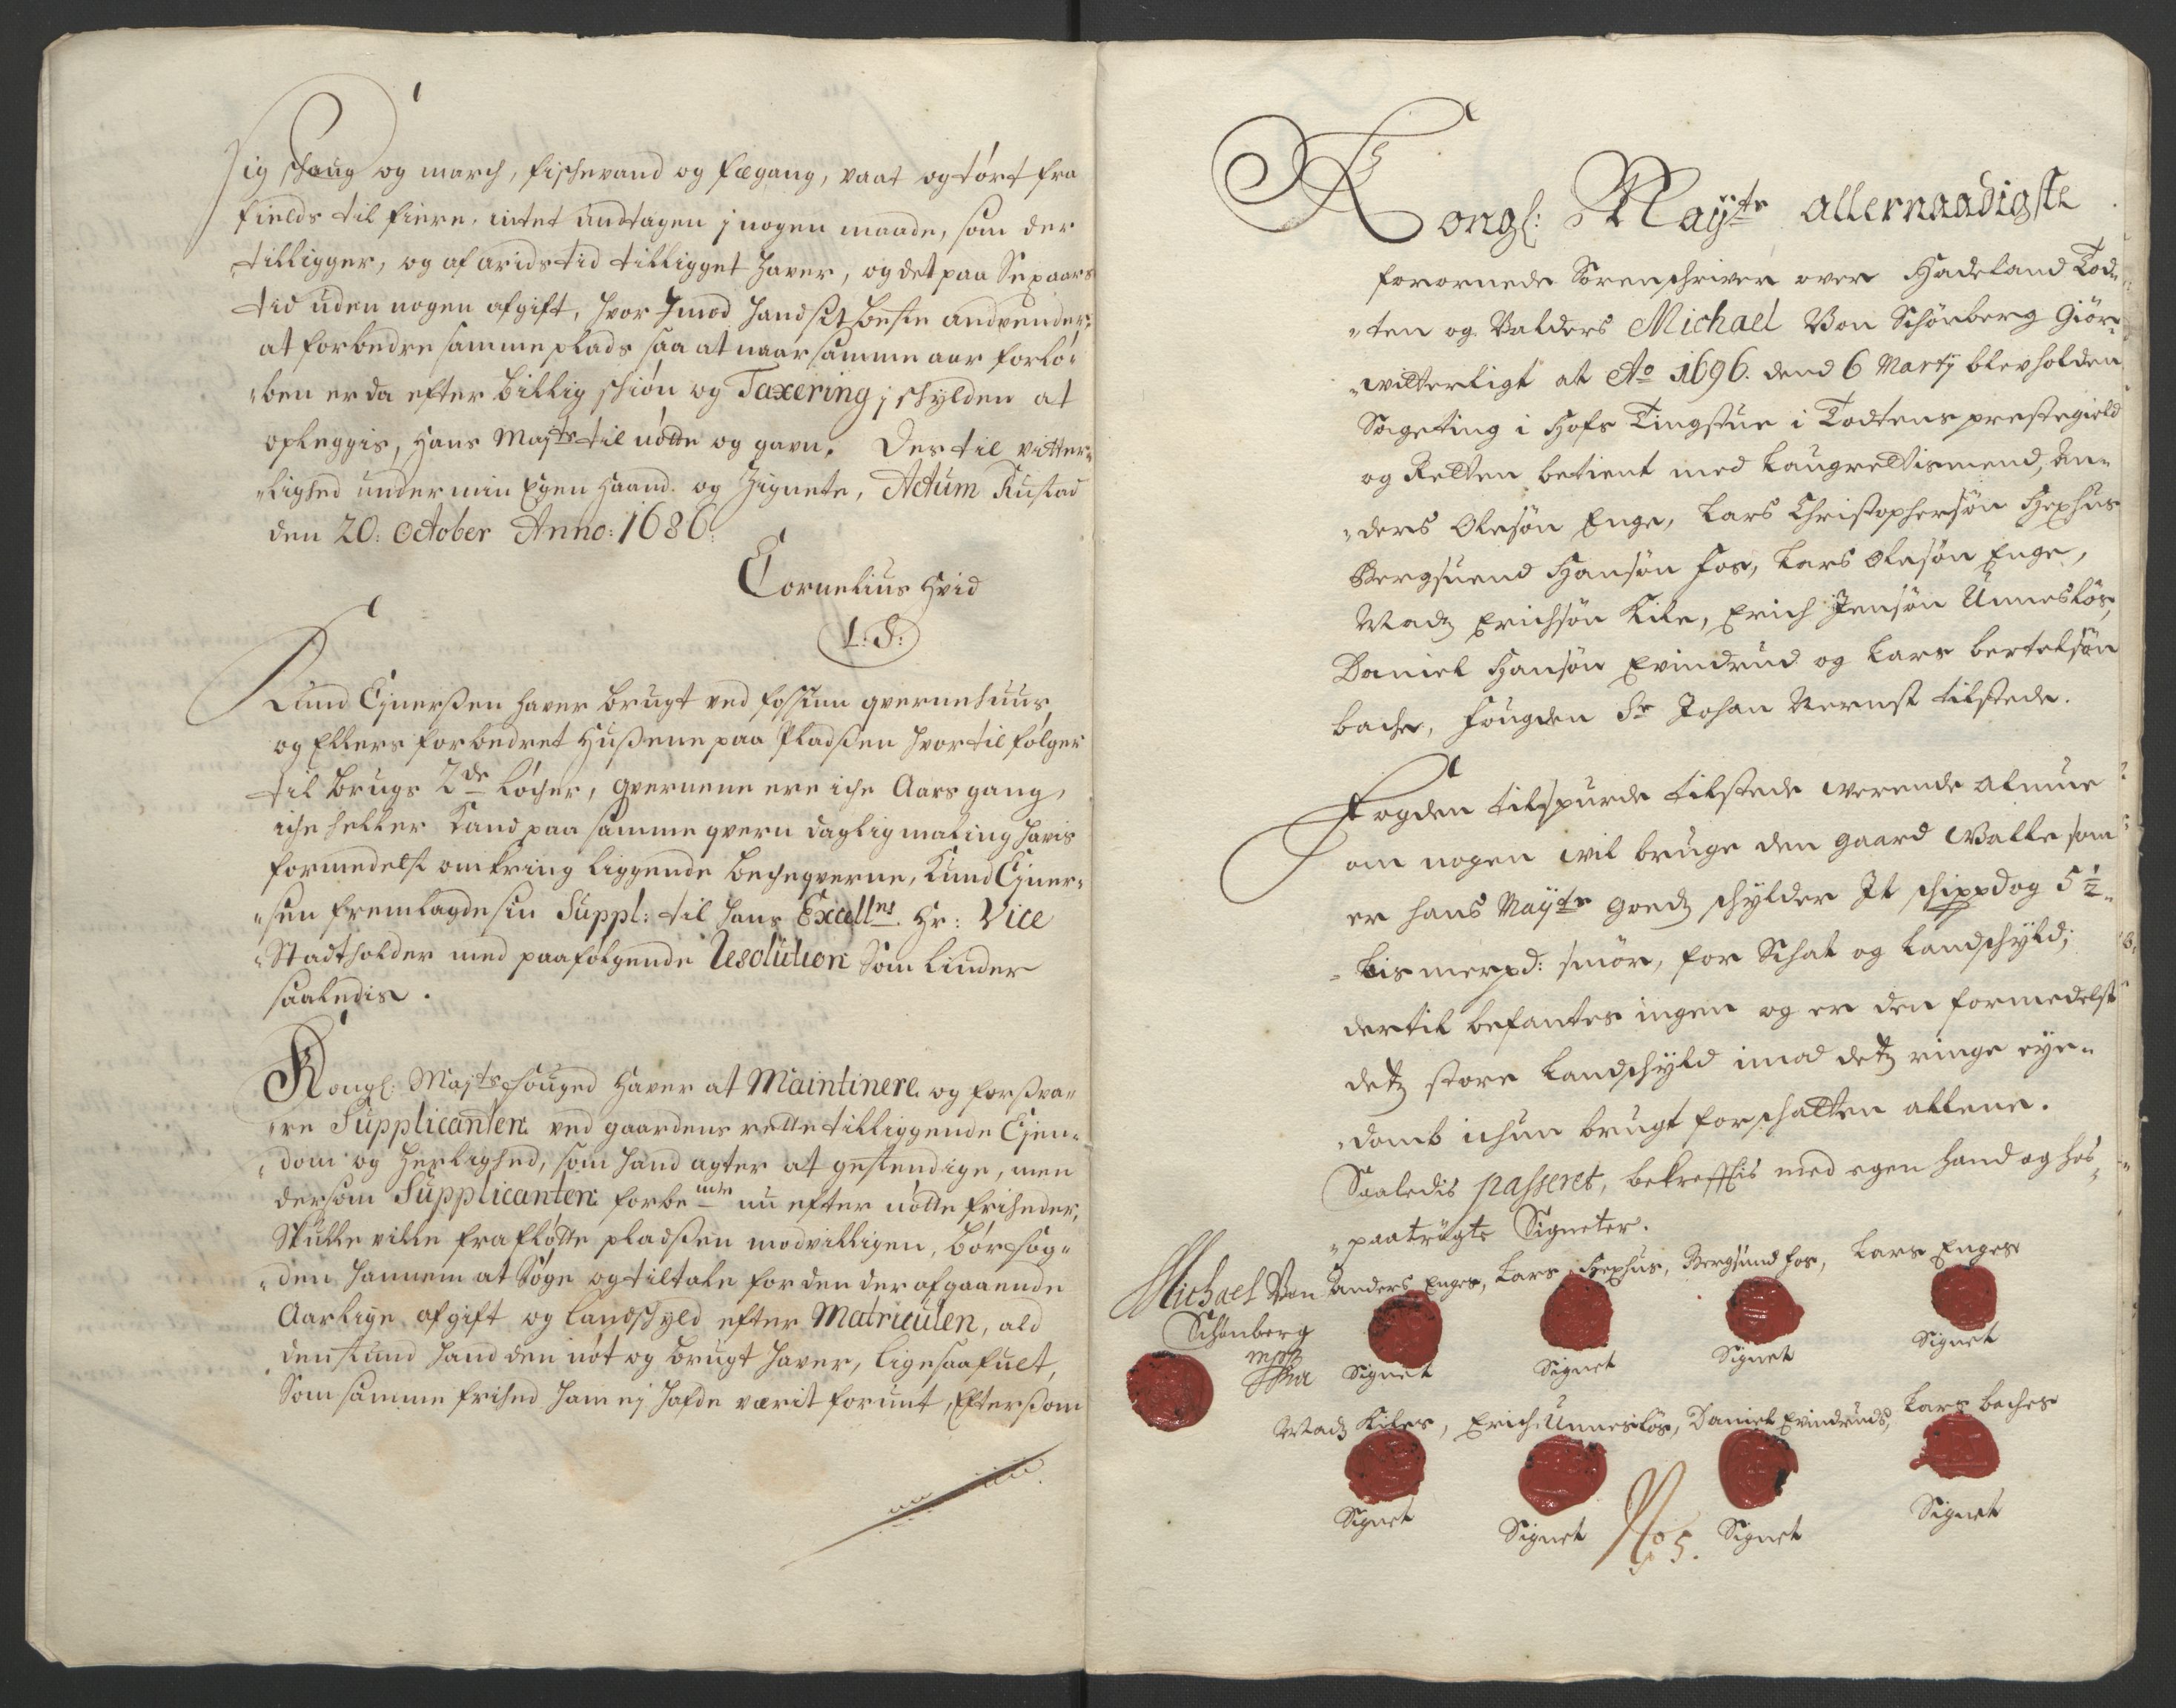 Sig schoug og march, fischevand og fægang, vaat og tørt fra
fields til fiere, intet undtagen j nogen maade, som der
tilligger, og af arids tid tilligget haver, og det paa Sex aars
tid uden nogen afgift, hvor Imod hand sit beste andvender
at forbedre samme plads saa at naar samme aar forlø¬
ben er da efter billig schiøn og Taxering j schylden at
opleggis, hans Maÿts til nøtte og gavn. Des til vitter¬
lighed under min Egen haand og Zignete, Actum Rustad
den 20: October Anno: 1686:
Cornelius Hvid
L: S:
Knud Ejnerssen haver brugt ved fossum qvernehuus
og Ellers forbedret Hussene paa Pladssen hvortil følger
til brugs 2de løcher, qvernene ere iche Aars gang,
iche heller kand paa samme qvern daglig maling havis
formedelst omkring liggende becheqverne, Knud Ejner¬
sen fremlagde sin Suppl: til hans Excellns Hr: Vice
Stadtholder med paafølgende Resolution Som linder
saaledis.
Kongl: Majts fouged haver at Maintinere og forsva¬
re Supplicanten ved gaardens rette tilliggende Ejen¬
dom og herlighed, som hand agter at gestendige, men
dersom Supplicanten forbemte nu efter nøtte friheder,
Skulle ville frafløtte pladssen modvilligen, bør fog¬
den hannem at Søge og tiltale for den der afgaaende
Aarlige afgift og landschyld efter Matriculen, ald
den stund hand den nøt og brugt haver, ligesaafult,
Som samme frihed ham ej hafde værit forunt, Efterssom
Kongl: Mayts allernaadigste
forornede Sorenschriver over Hadeland Tod¬
ten og Valders Michael Von Schönberg Giör
witterligt at Ao 1696. dend 6 Martÿ blev holden
Sageting i Hofs Tingstue i Todtens prestegield
og Retten betient med Laugrettismend, An¬
ders Olesön Enge, Lars Christophersön Hexhus
Bergsuend Hansön Fos, Lars Olesön Enge,
Madtz Erichsön Kile, Erich Jensön Unneslös,
Daniel Hansön Evindrud og Lars bertelsön
bache, Fougden Sr Johan Vernst tilstede.
Fogden tilspurde tilstede werende almue
om nogen wil bruge den gaard Walle som
er hans Mayts goedtz schylder It schippd og 5 ½
bismerpd: smör, for Schat og Landschyld;
dertil befantes ingen og er den formedelst
detz store Landschyld imod detz ringe eye¬
domb ichun brugt for schatten allene.
Saaledis passeret, bekreffis med egen hand og hos
paatrÿgte Signeter.
Michael Von
Schönberg
mpp
Anders Enges, Lars Hexhus, Bergsuend fos, Lars Enges
Signet Signet Signet Signet
Madtz Kiles, Erich Unneslös, Daniel Evindruds, Lars baches
Signet Signet Signet Signet
No 5.